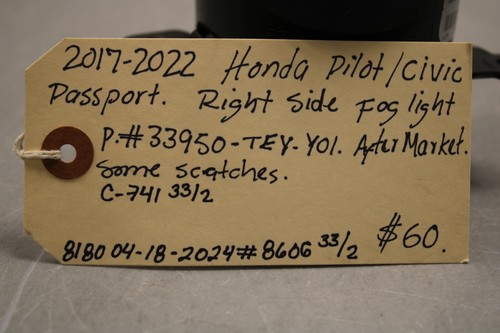 2017-2022 Honda Pilot/Civic
Passport. Right Side Fog light
P.#33950-TEY-Y01. AfterMarket.
Some scatches.
C-741 33/2
$60.
8180 04-18-2024#8606 33/2